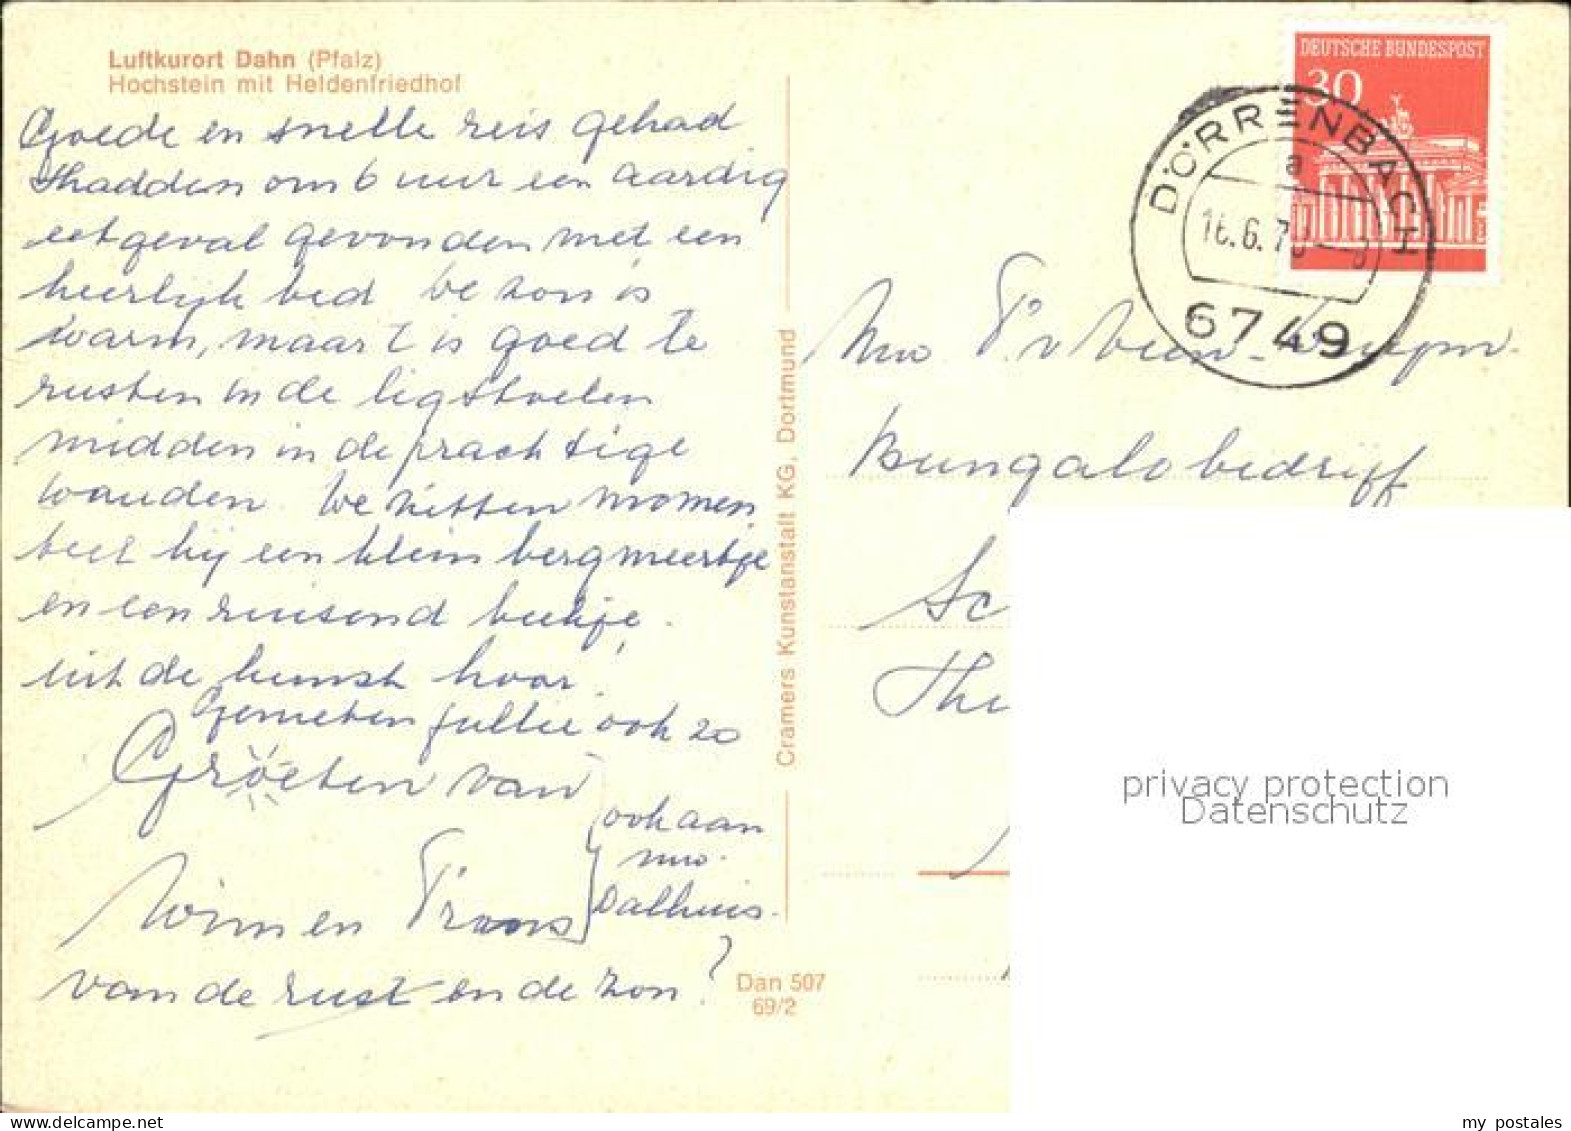 Luftkurort Dahn (Pfalz)
Hochstein mit Heldenfriedhof
Goede en snelle reis gehad
Hadden om 6 uur een aardig
eetgeval gevonden met een
heerlijk bed We zon is
warm, maar t is goed te
rusten in de ligstoelen
midden in de prachtige
wouden. We zitten momen
teel bij een klein bergmeertje
en een ruisend beekje.
uit de kunst hoor!
Genieten jullie ook zo
Groeten van
Wim en Truus
ook aan
mw.
Dalhuis.
van de rust en de zon?
Cramers Kunstanstalt KG, Dortmund
Dan 507
69/2
DEUTSCHE BUNDESPOST
30
DÖRRENBACH
a
16.6.70 - 8
6749
Bungalobedrijf
Sc
Th
privacy protection
Datenschutz
my postales
www.delcampe.net